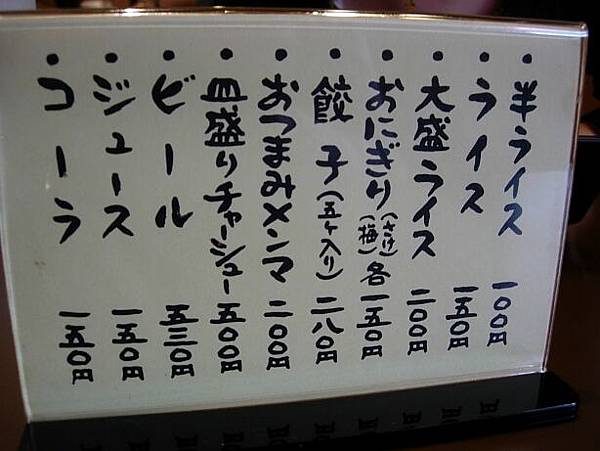 ・半ライス 一〇〇円
・ライス 一五〇円
・大盛ライス 二〇〇円
・おにぎり(さけ)(梅)各一五〇円
・餃子(五ヶ入り)二八〇円
・おつまみメンマ 二〇〇円
・皿盛りチャーシュー 五〇〇円
・ビール 五三〇円
・ジュース 一五〇円
・コーラ 一五〇円